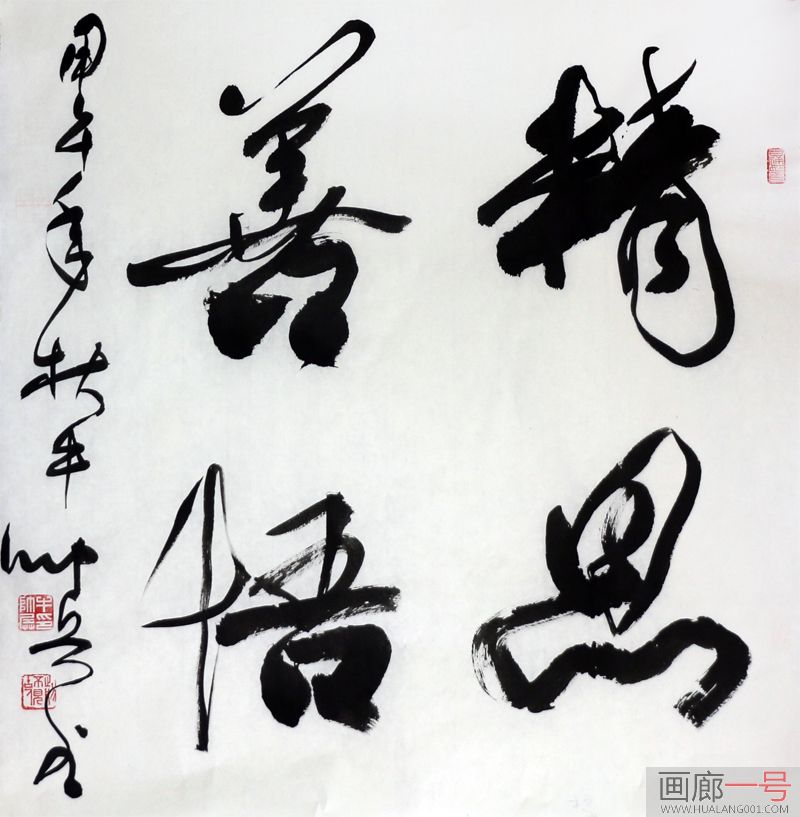 精思
善悟
甲午年秋牛帅兵书
画廊一号
WWW.HUALANG001.COM